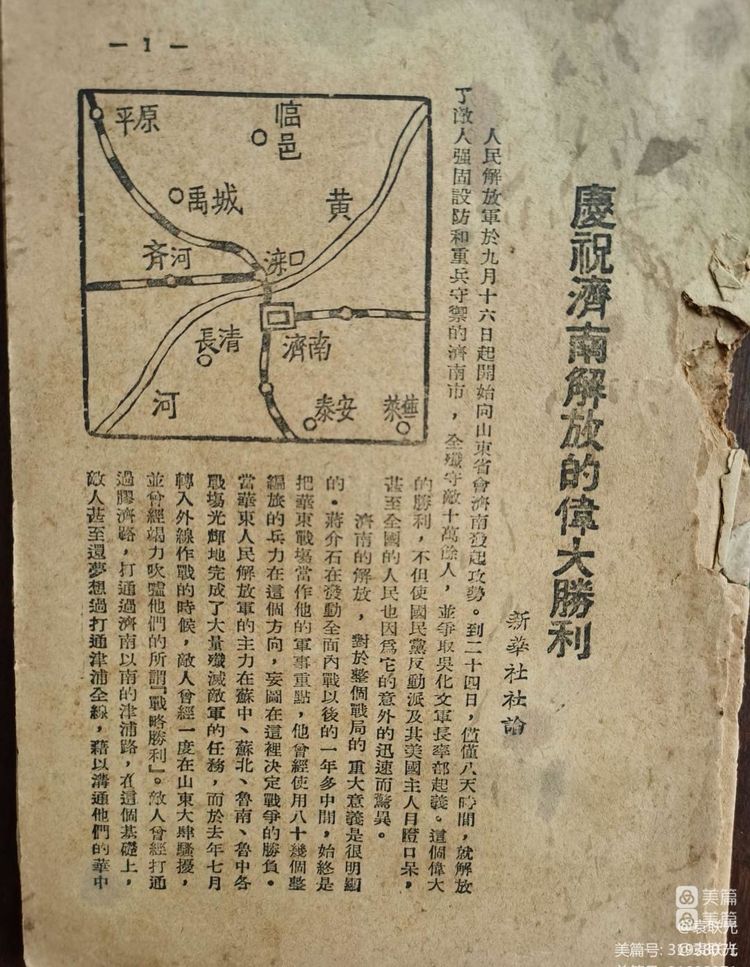 — 1 —
慶祝濟南解放的偉大勝利
新華社社論
人民解放軍於九月十六日起開始向山東省會濟南發起攻勢。到二十四日，僅僅八天時間，就解放
了敵人强固設防和重兵守禦的濟南市，全殲守敵十萬餘人，並爭取吳化文軍長率部起義。這個偉大
的勝利，不但使國民黨反動派及其美國主人目瞪口呆，
甚至全國的人民也因爲它的意外的迅速而驚異。
濟南的解放，對於整個戰局的重大意義是很明顯
的。蔣介石在發動全面內戰以後的一年多中間，始終是
把華東戰場當作他的軍事重點，他曾經使用八十幾個整
編旅的兵力在這個方向，妄圖在這裡決定戰爭的勝負。
當華東人民解放軍的主力在蘇中、蘇北、魯南、魯中各
戰場光輝地完成了大量殲滅敵軍的任務，而於去年七月
轉入外線作戰的時候，敵人曾經一度在山東大肆騷擾，
並曾經竭力吹噓他們的所謂『戰略勝利』。敵人曾經打通
過膠濟路，打通過濟南以南的津浦路，在這個基礎上，
敵人甚至還夢想過打通津浦全線，藉以溝通他們的華中
平原
臨邑
禹城
黄
齐河
濼口
長清
濟南
河
泰安
萊蕪
美篇
美篇
@袁联光
美篇号: 31928071